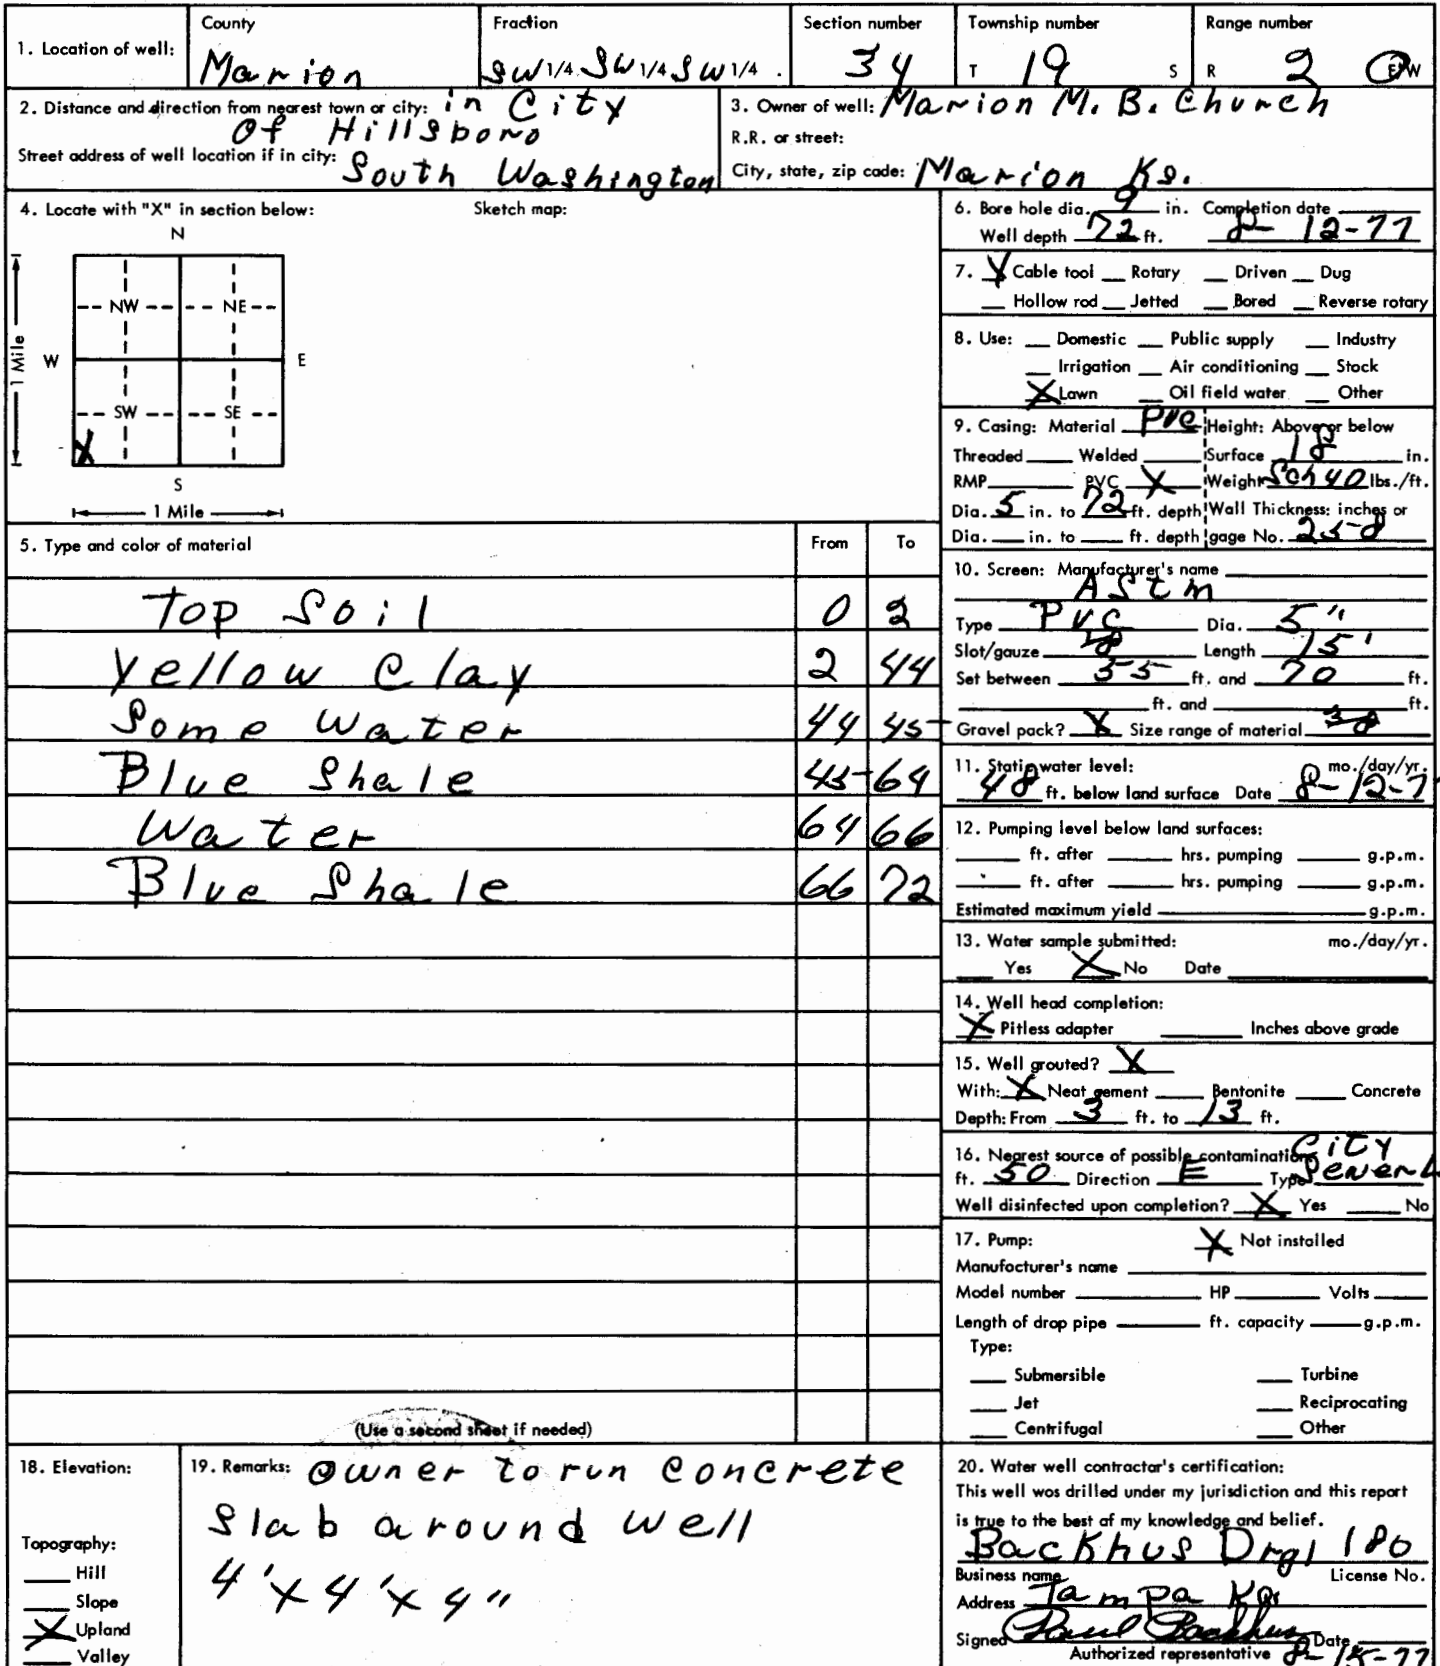 1. Location of well:
County
Marion
Fraction
SW 1/4 SW 1/4 SW 1/4
Section number
34
Township number
T 19 S
Range number
R 2 E W
2. Distance and direction from nearest town or city: in City
Of Hillsboro
Street address of well location if in city: South Washington
3. Owner of well: Marion M. B. Church
R.R. or street:
City, state, zip code: Marion Ks.
4. Locate with "X" in section below:
Sketch map:
N
NW NE
W E
1 Mile
SW SE
X
S
1 Mile
5. Type and color of material From To
Top Soil 0 2
Yellow Clay 2 44
Some Water 44 45
Blue Shale 45 64
Water 64 66
Blue Shale 66 72
(Use a second sheet if needed)
6. Bore hole dia. 9 in. Completion date
Well depth 72 ft. 8-12-77
7. X Cable tool Rotary Driven Dug
Hollow rod Jetted Bored Reverse rotary
8. Use: Domestic Public supply Industry
Irrigation Air conditioning Stock
X Lawn Oil field water Other
9. Casing: Material PVC Height: Above or below
Threaded Welded Surface 18 in.
RMP PVC X Weight Sch 40 lbs./ft.
Dia. 5 in. to 72 ft. depth Wall Thickness: inches or
Dia. in. to ft. depth gage No. 258
10. Screen: Manufacturer's name
ASTM
Type PVC Dia. 5"
Slot/gauze Length 15'
Set between 55 ft. and 70 ft.
ft. and ft.
Gravel pack? X Size range of material
11. Static water level: mo./day/yr.
48 ft. below land surface Date 8-12-7
12. Pumping level below land surfaces:
ft. after hrs. pumping g.p.m.
ft. after hrs. pumping g.p.m.
Estimated maximum yield g.p.m.
13. Water sample submitted: mo./day/yr.
Yes X No Date
14. Well head completion:
X Pitless adapter Inches above grade
15. Well grouted? X
With: X Neat cement Bentonite Concrete
Depth: From 3 ft. to 13 ft.
16. Nearest source of possible contamination: City
ft. 50 Direction E Type
Well disinfected upon completion? X Yes No
17. Pump: X Not installed
Manufacturer's name
Model number HP Volts
Length of drop pipe ft. capacity g.p.m.
Type:
Submersible Turbine
Jet Reciprocating
Centrifugal Other
18. Elevation:
Topography:
Hill
Slope
X Upland
Valley
19. Remarks: Owner to run concrete
Slab around well
4' x 4' x 4"
20. Water well contractor's certification:
This well was drilled under my jurisdiction and this report
is true to the best of my knowledge and belief.
Backhus Drgl 180
Business name License No.
Address Tampa Ks.
Signed Paul Backhus Date
Authorized representative 8-15-77